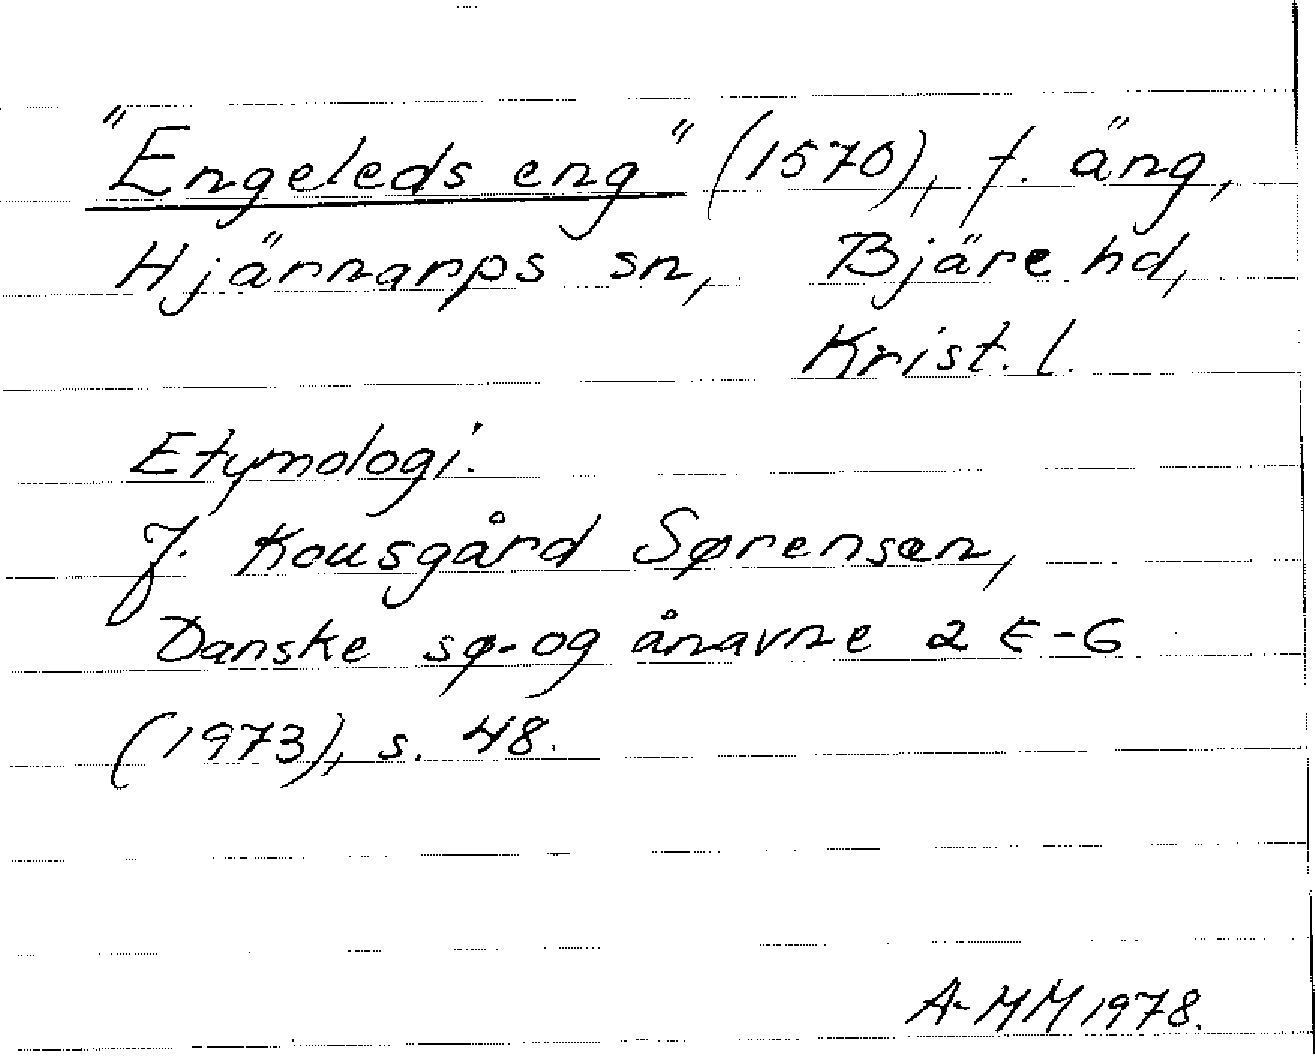 "Engeleds eng" (1570), f. äng,
Hjärnarps sn, Bjäre hd,
Krist. l.
Etymologi.
J. Kousgård Sørensen,
Danske sø- og ånavne 2 E-G
(1973), s. 48.
A-MM 1978.